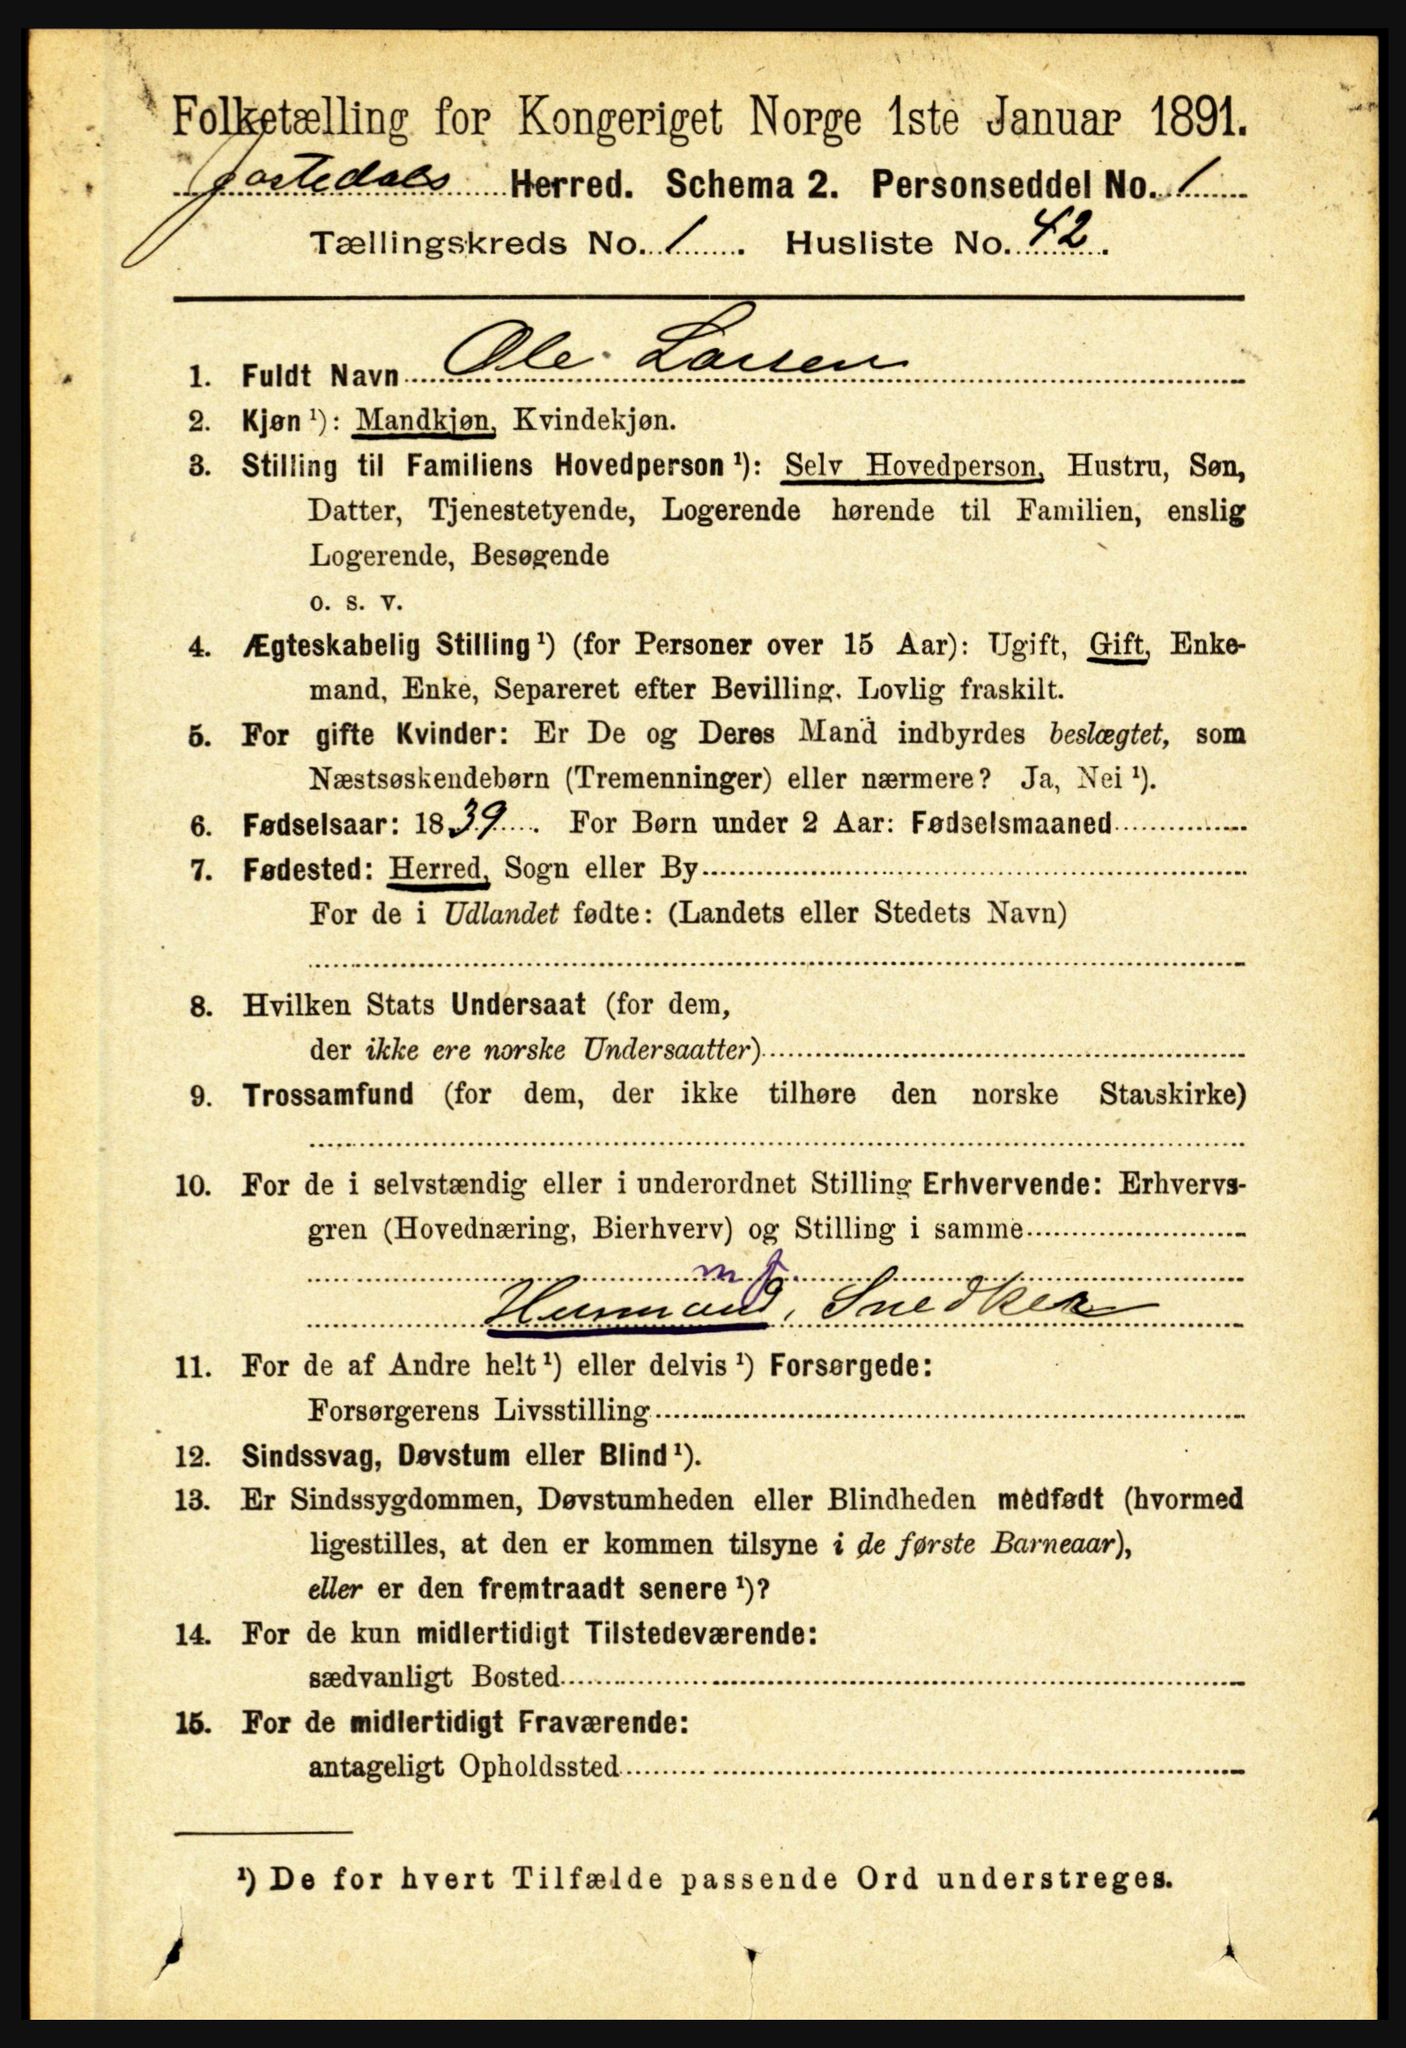 Folketælling for Kongeriget Norge 1ste Januar 1891.
Jostedals Herred. Schema 2. Personseddel No. 1
Tællingskreds No. 1. Husliste No. 42.
1. Fuldt Navn Ole Larsen
2. Kjøn ¹): Mandkjøn, Kvindekjøn.
3. Stilling til Familiens Hovedperson ¹): Selv Hovedperson, Hustru, Søn,
Datter, Tjenestetyende, Logerende hørende til Familien, enslig
Logerende, Besøgende
o. s. v.
4. Ægteskabelig Stilling ¹) (for Personer over 15 Aar): Ugift, Gift, Enke-
mand, Enke, Separeret efter Bevilling. Lovlig fraskilt.
5. For gifte Kvinder: Er De og Deres Mand indbyrdes beslægtet, som
Næstsøskendebørn (Tremenninger) eller nærmere? Ja, Nei ¹).
6. Fødselsaar: 1839. For Børn under 2 Aar: Fødselsmaaned
7. Fødested: Herred, Sogn eller By
For de i Udlandet fødte: (Landets eller Stedets Navn)
8. Hvilken Stats Undersaat (for dem,
der ikke ere norske Undersaatter)
9. Trossamfund (for dem, der ikke tilhøre den norske Statskirke)
10. For de i selvstændig eller i underordnet Stilling Erhvervende: Erhvervs-
gren (Hovednæring, Bierhverv) og Stilling i samme
m f.
Husmand, Snedker
11. For de af Andre helt ¹) eller delvis ¹) Forsørgede:
Forsørgerens Livsstilling
12. Sindssvag, Døvstum eller Blind ¹).
13. Er Sindssygdommen, Døvstumheden eller Blindheden medfødt (hvormed
ligestilles, at den er kommen tilsyne i de første Barneaar),
eller er den fremtraadt senere ¹)?
14. For de kun midlertidigt Tilstedeværende:
sædvanligt Bosted
15. For de midlertidigt Fraværende:
antageligt Opholdssted
¹) De for hvert Tilfælde passende Ord understreges.